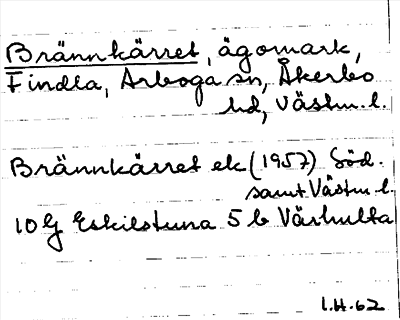 Brännkärret, ägomark,
Findla, Arboga sn, Åkerbo
hd, Västm. l.
Brännkärret ek (1957) Söd.
samt Västm l.
10 G Eskilstuna 5 b Värhulta
1.H.62